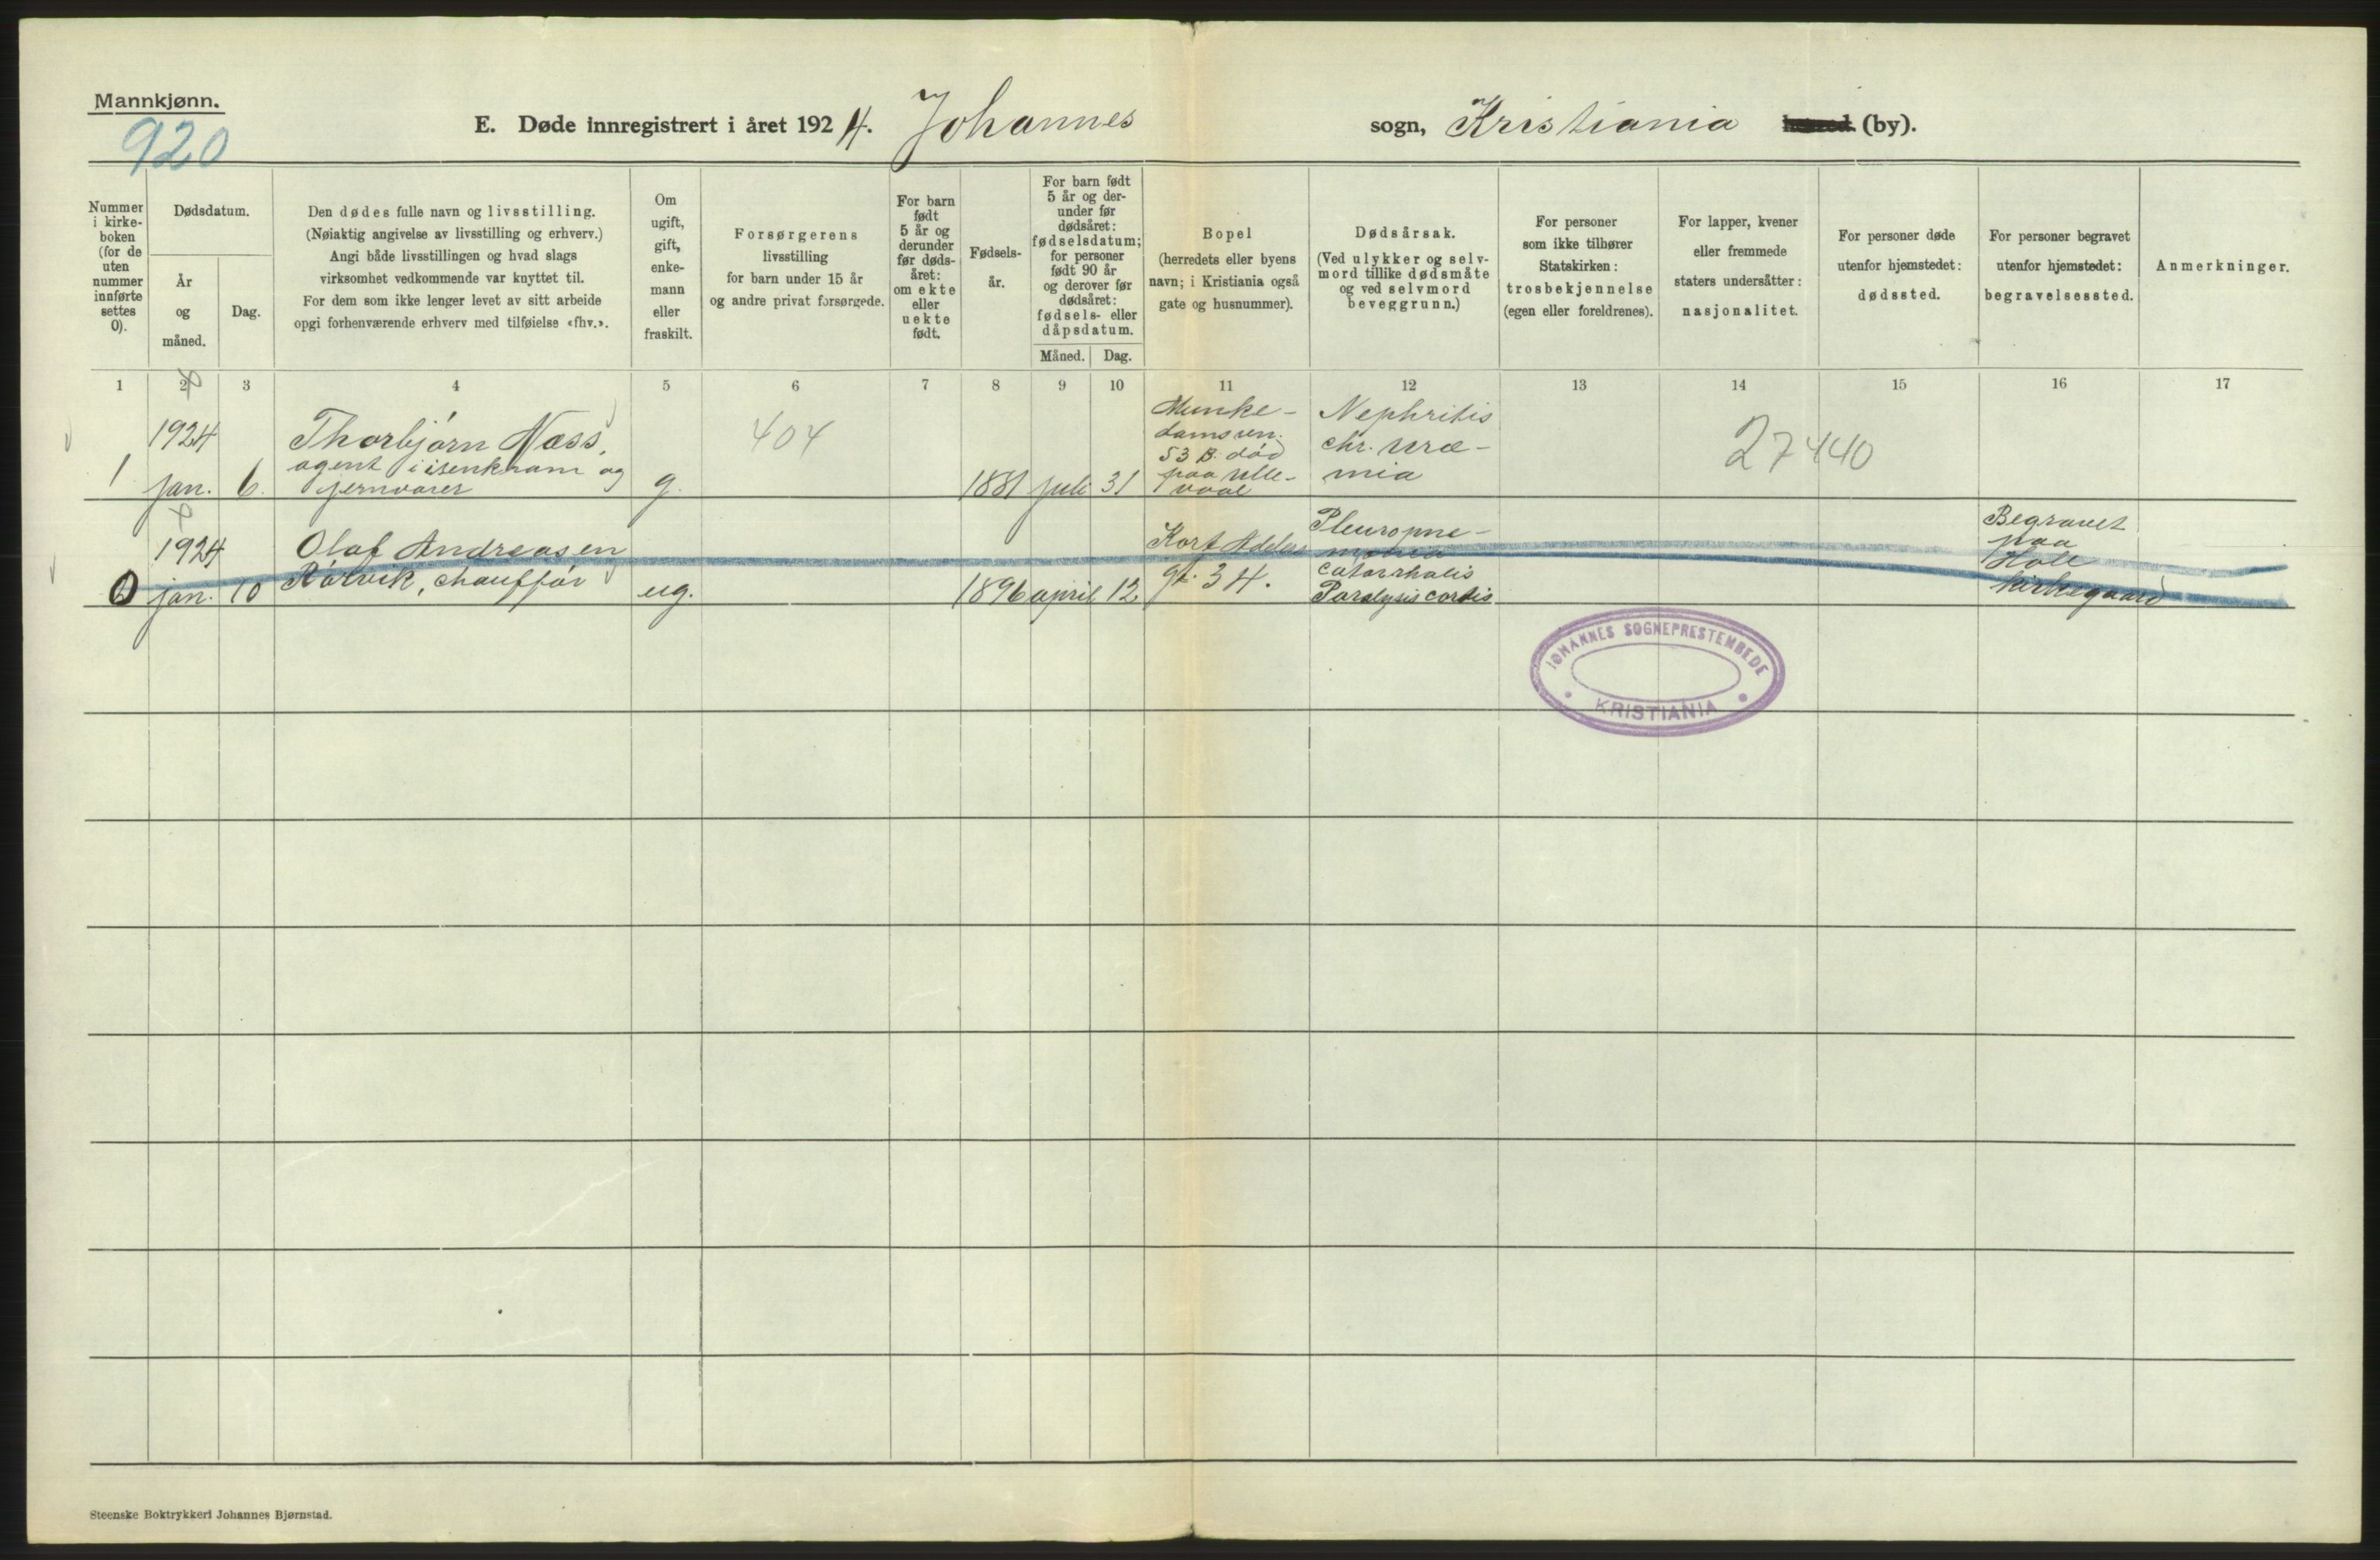 Mannkjønn.
920
E. Døde innregistrert i året 1924. Johannes sogn, Kristiania herred (by).
Nummer i kirke- boken (for de uten nummer innførte settes 0).
Dødsdatum.
År og måned.
Dag.
Den dødes fulle navn og livsstilling.
(Nøiaktig angivelse av livsstilling og erhverv.)
Angi både livsstillingen og hvad slags
virksomhet vedkommende var knyttet til.
For dem som ikke lenger levet av sitt arbeide
opgi forhenværende erhverv med tilføielse «fhv.».
Om ugift, gift, enke- mann eller fraskilt.
Forsørgerens
livsstilling
for barn under 15 år
og andre privat forsørgede.
For barn født 5 år og derunder før døds- året: om ekte eller uekte født.
Fødsels- år.
For barn født 5 år og der- under før dødsåret: fødselsdatum; for personer født 90 år og derover før dødsåret: fødsels- eller dåpsdatum.
Måned. Dag.
Bopel
(herredets eller byens
navn; i Kristiania også
gate og husnummer).
Dødsårsak.
(Ved ulykker og selv-
mord tillike dødsmåte
og ved selvmord
beveggrunn.)
For personer
som ikke tilhører
Statskirken:
trosbekjennelse
(egen eller foreldrenes).
For lapper, kvener
eller fremmede
staters undersåtter:
nasjonalitet.
For personer døde
utenfor hjemstedet:
dødssted.
For personer begravet
utenfor hjemstedet:
begravelsessted.
Anmerkninger.
1 2 3 4 5 6 7 8 9 10 11 12 13 14 15 16 17
1
1924
jan. 6.
Thorbjørn Næss,
agent i isenkram og
jernvarer
g.
404
1881 juli 31
Munke-
damsven.
53 B. død
paa Ulle-
vaal
Nephritis
chr. Uræ-
mia
27440
0
1924
jan. 10
Olaf Andreasen
Rørvik, chauffør
ug.
1896 april 12
Kort Adelers
gt. 34.
Pleuropne-
monia
catarrhalis
Paralysis cordis
Begravet
paa
Hole
kirkegaard
JOHANNES SOGNEPRESTEMBEDE
KRISTIANIA
Steenske Boktrykkeri Johannes Bjørnstad.